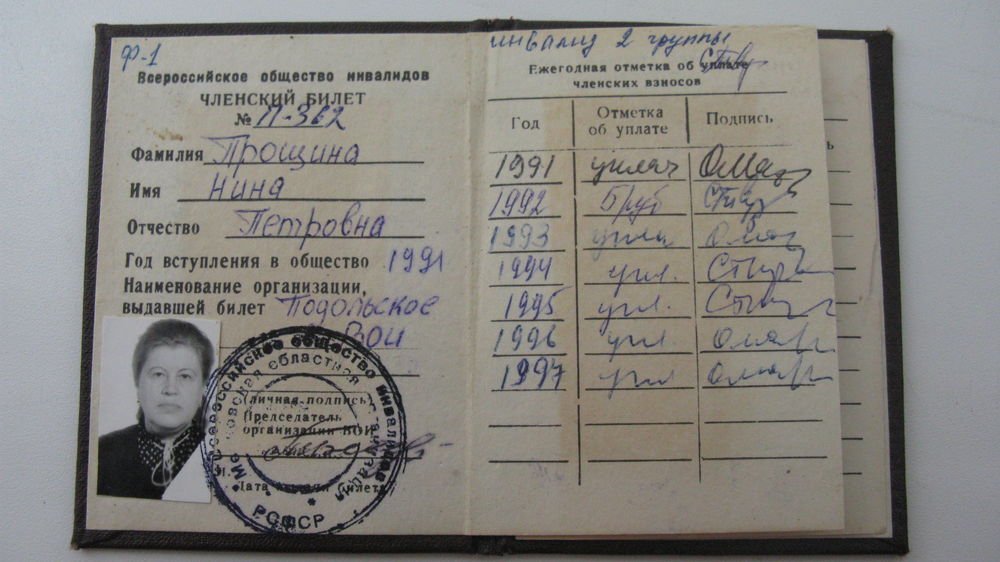 Ф-1
Всероссийское общество инвалидов
ЧЛЕНСКИЙ БИЛЕТ
№ П-362
Фамилия Прощина
Имя Нина
Отчество Петровна
Год вступления в общество 1991
Наименование организации,
выдавшей билет Подольское
ВОИ
ВСЕРОССИЙСКОЕ ОБЩЕСТВО ИНВАЛИДОВ
Московская областная организация
РСФСР
(личная подпись)
Председатель
организации ВОИ
инвалид 2 группы
Ежегодная отметка об уплате
членских взносов
Год Отметка об уплате Подпись
1991
1992
1993
1994 упл.
1995 упл.
1996 упл.
1997 упл